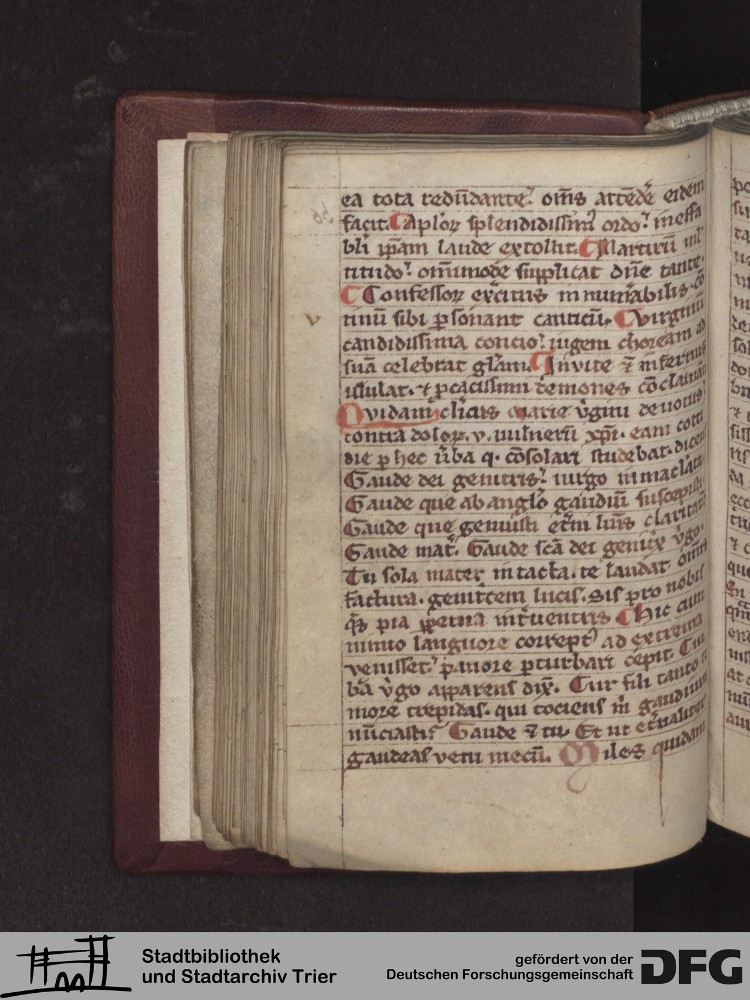 ea tota redūdante. om̄s attēdē eidem
facit. Apl'oꝝ splendidissim' ordo. ineffa
bli ip̄am laude extollit. Martirū ml'
titudo. om̄imode supplicat dn̄e tante.
Confessoꝝ ex̄citus innum̄abilis. cō
tinū sibi ꝑsonant canticū. Virginū
candidissima concio. iugem choream ad
suā celebrat gl'am. Invite ⁊ infernus
ululat. ⁊ ꝓcacissimi demones cōclamāt
Quidam clicus Marie v̓gini deuotus.
contra doloꝝ. v. uulnerū xp̄i. eam cotti
die ꝑ hec ūba q. cōsolari studebat. dicens
Gaude dei genitrix. uirgo inmaclata.
Gaude que ab anglo gaudiū suscepisti.
Gaude que genuisti et̄ni lūis claritatē
Gaude mat̄. Gaude scā dei genitx v̓go.
Tu sola mater intacta. te laudat om̄is
factura. genitcem lucis. sis pro nobis
q̄s pia ꝑpetua int̄uentrix Hic cum
nimio languore corrept' ad extrema
venisset. pauore ꝑturbari cepit. Cui
bā v̓go apparens dix̄. Cur fili tanto ti
more trepidas. qui tociens m̄ gaudium
nūciasti? Gaude ⁊ tu. Et ut et̄naliter
gaudeas veni mecū. Miles quidam
Stadtbibliothek
und Stadtarchiv Trier
gefördert von der
Deutschen Forschungsgemeinschaft
DFG